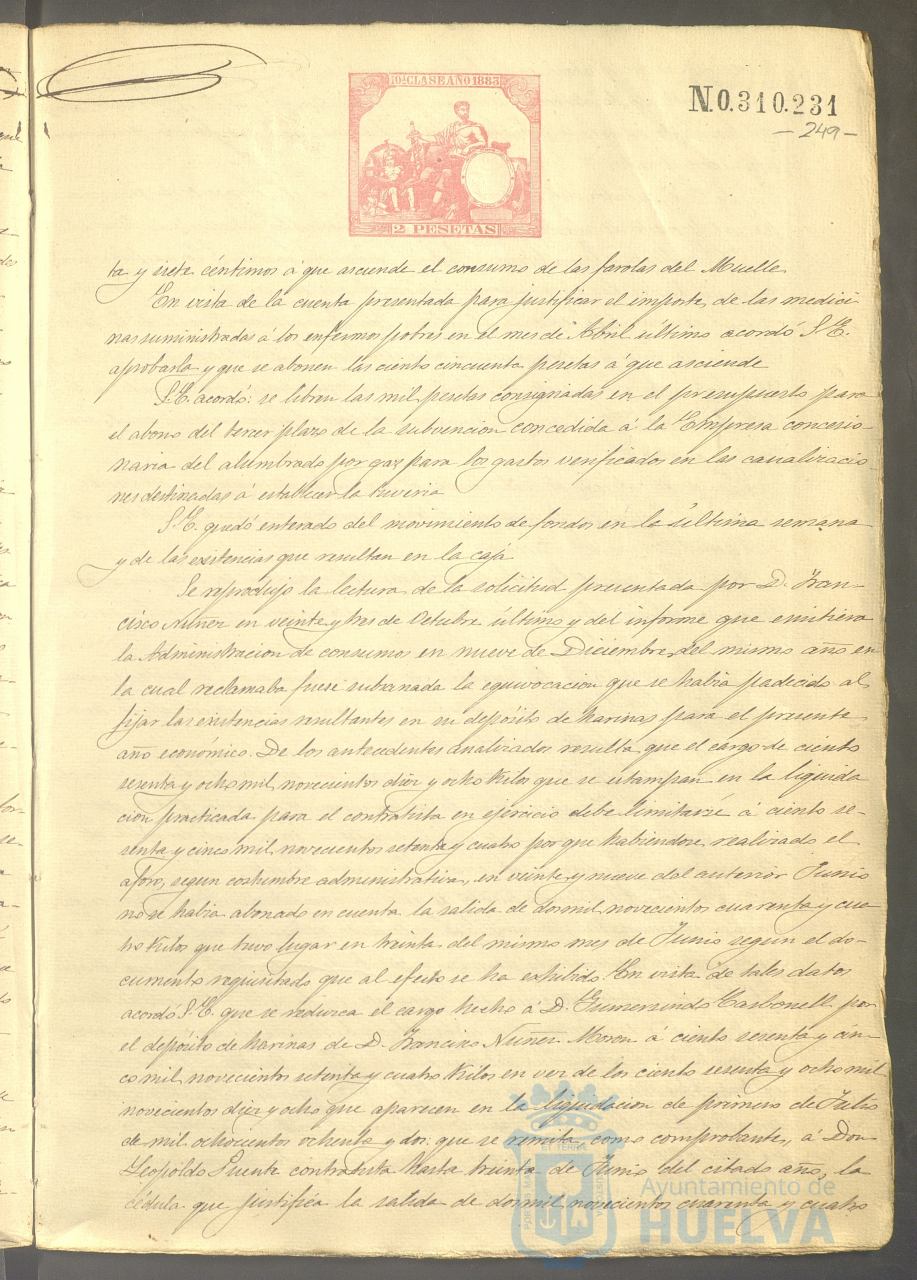 10ª CLASE AÑO 1883
2 PESETAS
N.0.310.231
- 249 -
ta y siete céntimos á que asciende el consumo de las farolas del Muelle
En vista de la cuenta presentada para justificar el importe de las medici
nas suministradas á los enfermos pobres en el mes de Abril último acordó S.E.
aprobarla y que se abonen las ciento cincuenta pesetas á que asciende
S.E. acordó: se libren las mil pesetas consignadas en el presupuesto para
el abono del tercer plazo de la subvencion concedida á la Empresa concesio
naria del alumbrado por gaz para los gastos verificados en las canalizacio
nes destinadas á establecer la
S.E. quedó enterado del movimiento de fondos en la última semana
y de las existencias que resultan en la caja
Se reprodujo la lectura de la solicitud presentada por D. Fran-
cisco Nuñez en veinte y tres de Octubre último y del informe que emitiera
la Administracion de consumos en nueve de Diciembre del mismo año en
la cual reclamaba fuese subsanada la equivocacion que se habia padecido al
fijar las existencias resultantes en su depósito de harinas para el presente
año económico. De los antecedentes analizados resulta que el cargo de ciento
sesenta y ocho mil novecientos diez y ocho kilos que se estampan en la liquida
cion practicada para el contratista en ejercicio debe limitarse á ciento se-
senta y cinco mil novecientos setenta y cuatro por que habiendose realizado el
aforo, segun costumbre administrativa, en veinte y nueve del anterior Junio
no se habia abonado en cuenta la salida de dos mil novecientos cuarenta y cua
tro kilos que tuvo lugar en treinta del mismo mes de Junio segun el do-
cumento requisitado que al efecto se ha exhibido. En vista de tales datos
acordó S.E. que se reduzca el cargo hecho á D. Gumersindo Carbonell por
el depósito de harinas de D. Francisco Nuñez Moron á ciento sesenta y cin-
co mil novecientos setenta y cuatro kilos en vez de los ciento sesenta y ocho mil
novecientos diez y ocho que aparecen en la liquidacion de primero de Julio
de mil ochocientos ochenta y dos: que se remita, como comprobante, á Don
Leopoldo Puente contratista hasta treinta de Junio del citado año, la
cédula que justifica la salida de dos mil novecientos cuarenta y cuatro
Ayuntamiento de
HUELVA